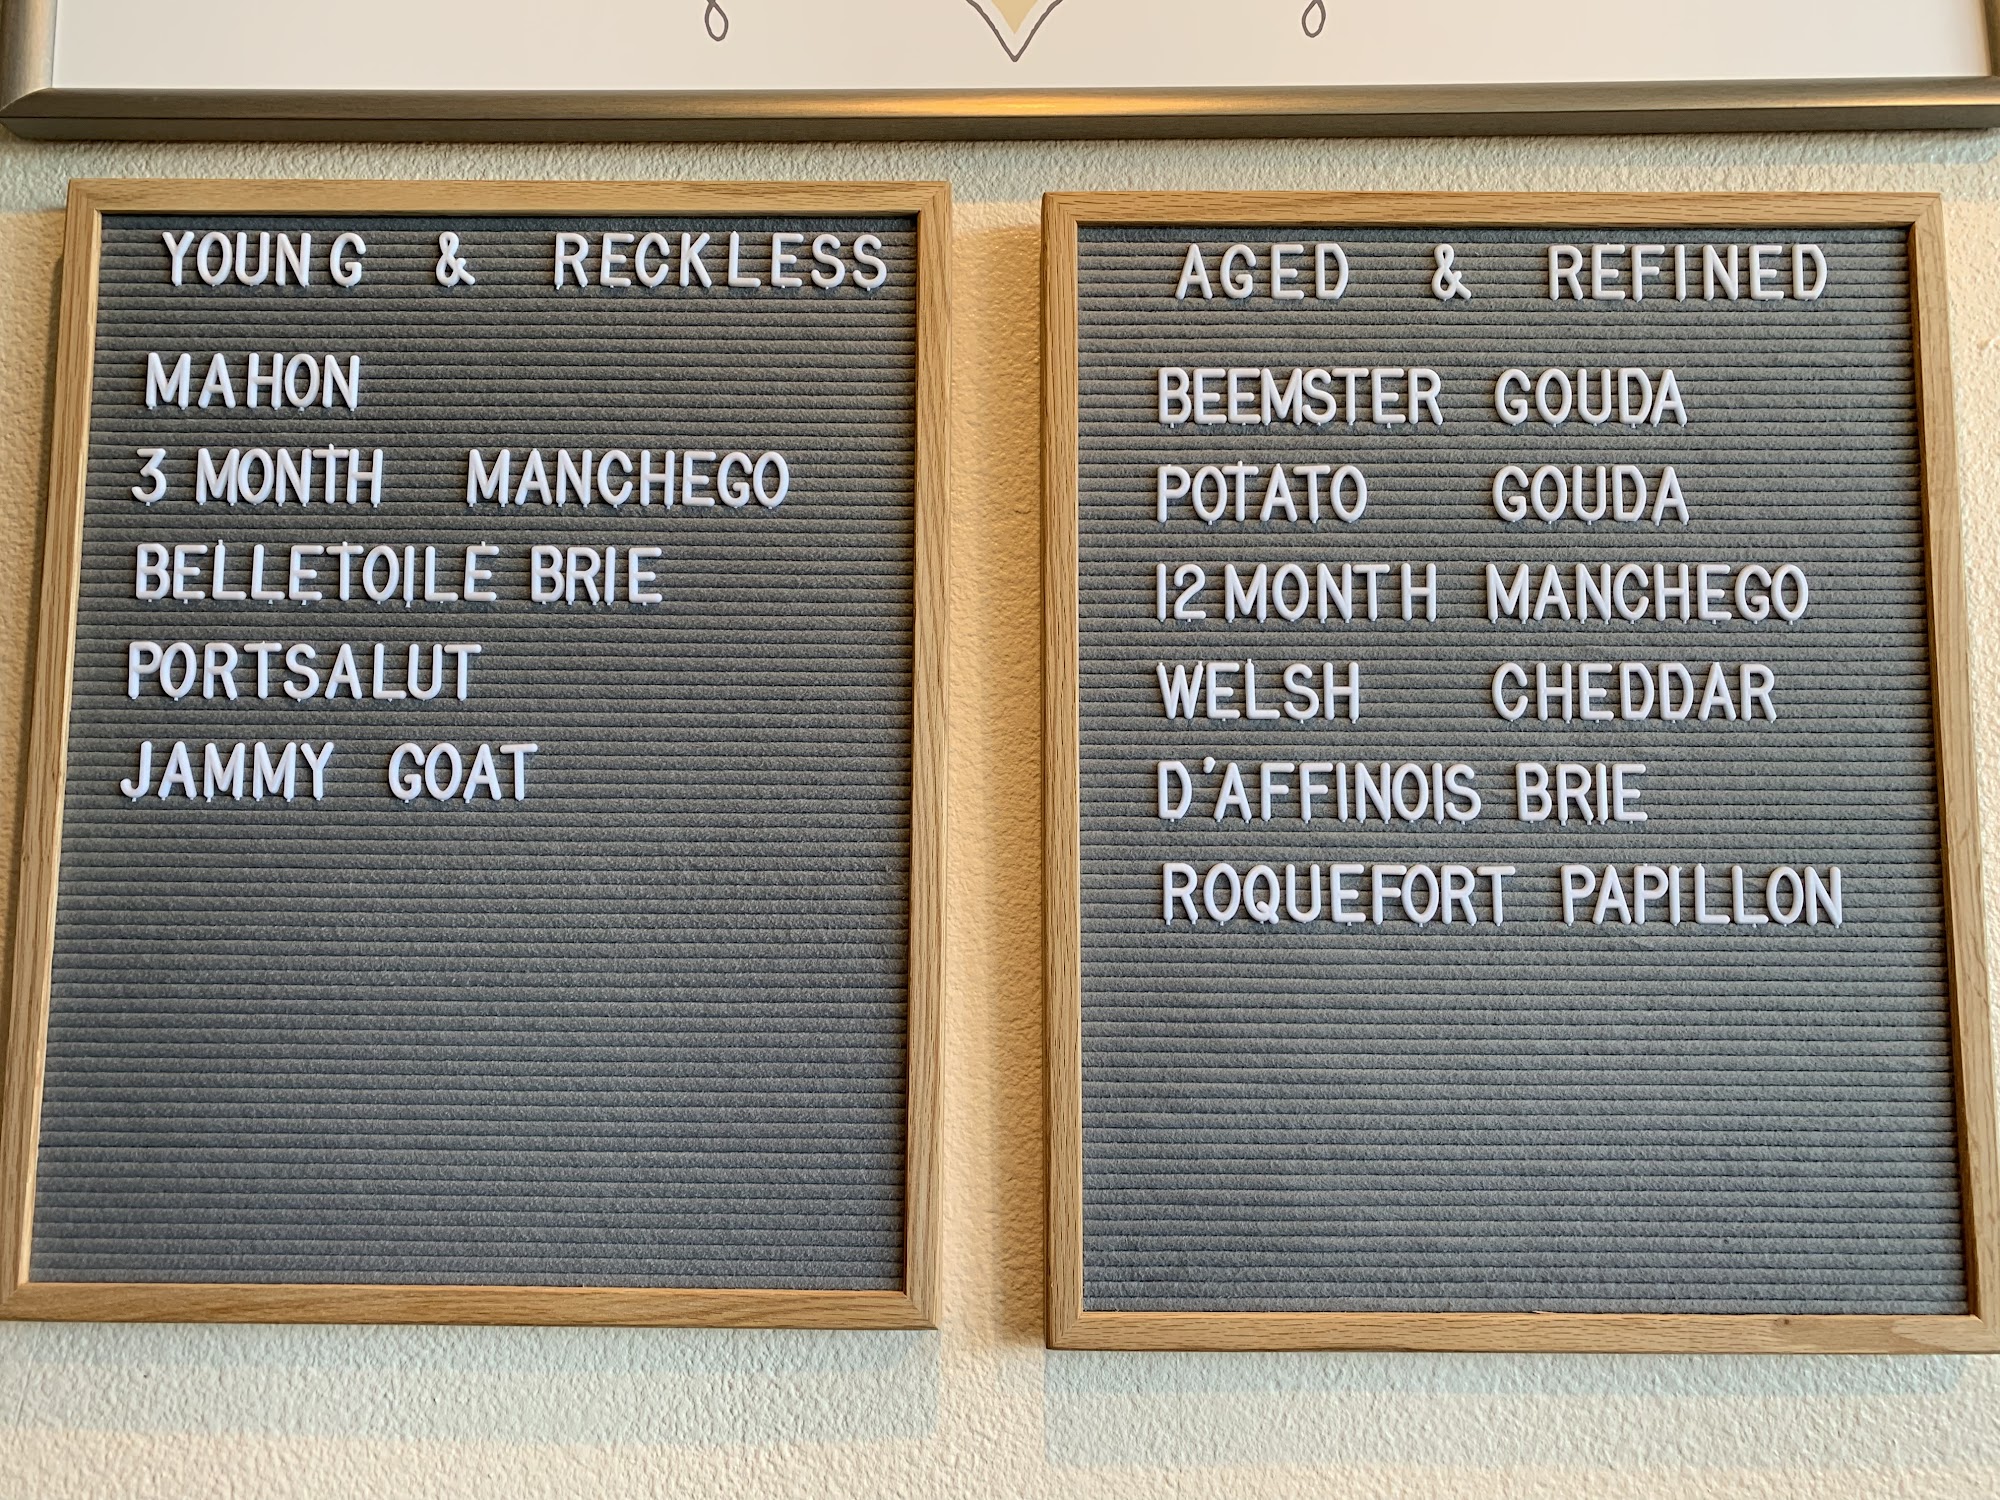 YOUNG & RECKLESS
MAHON
3 MONTH MANCHEGO
BELLETOILE BRIE
PORTSALUT
JAMMY GOAT
AGED & REFINED
BEEMSTER GOUDA
POTATO GOUDA
12 MONTH MANCHEGO
WELSH CHEDDAR
D'AFFINOIS BRIE
ROQUEFORT PAPILLON